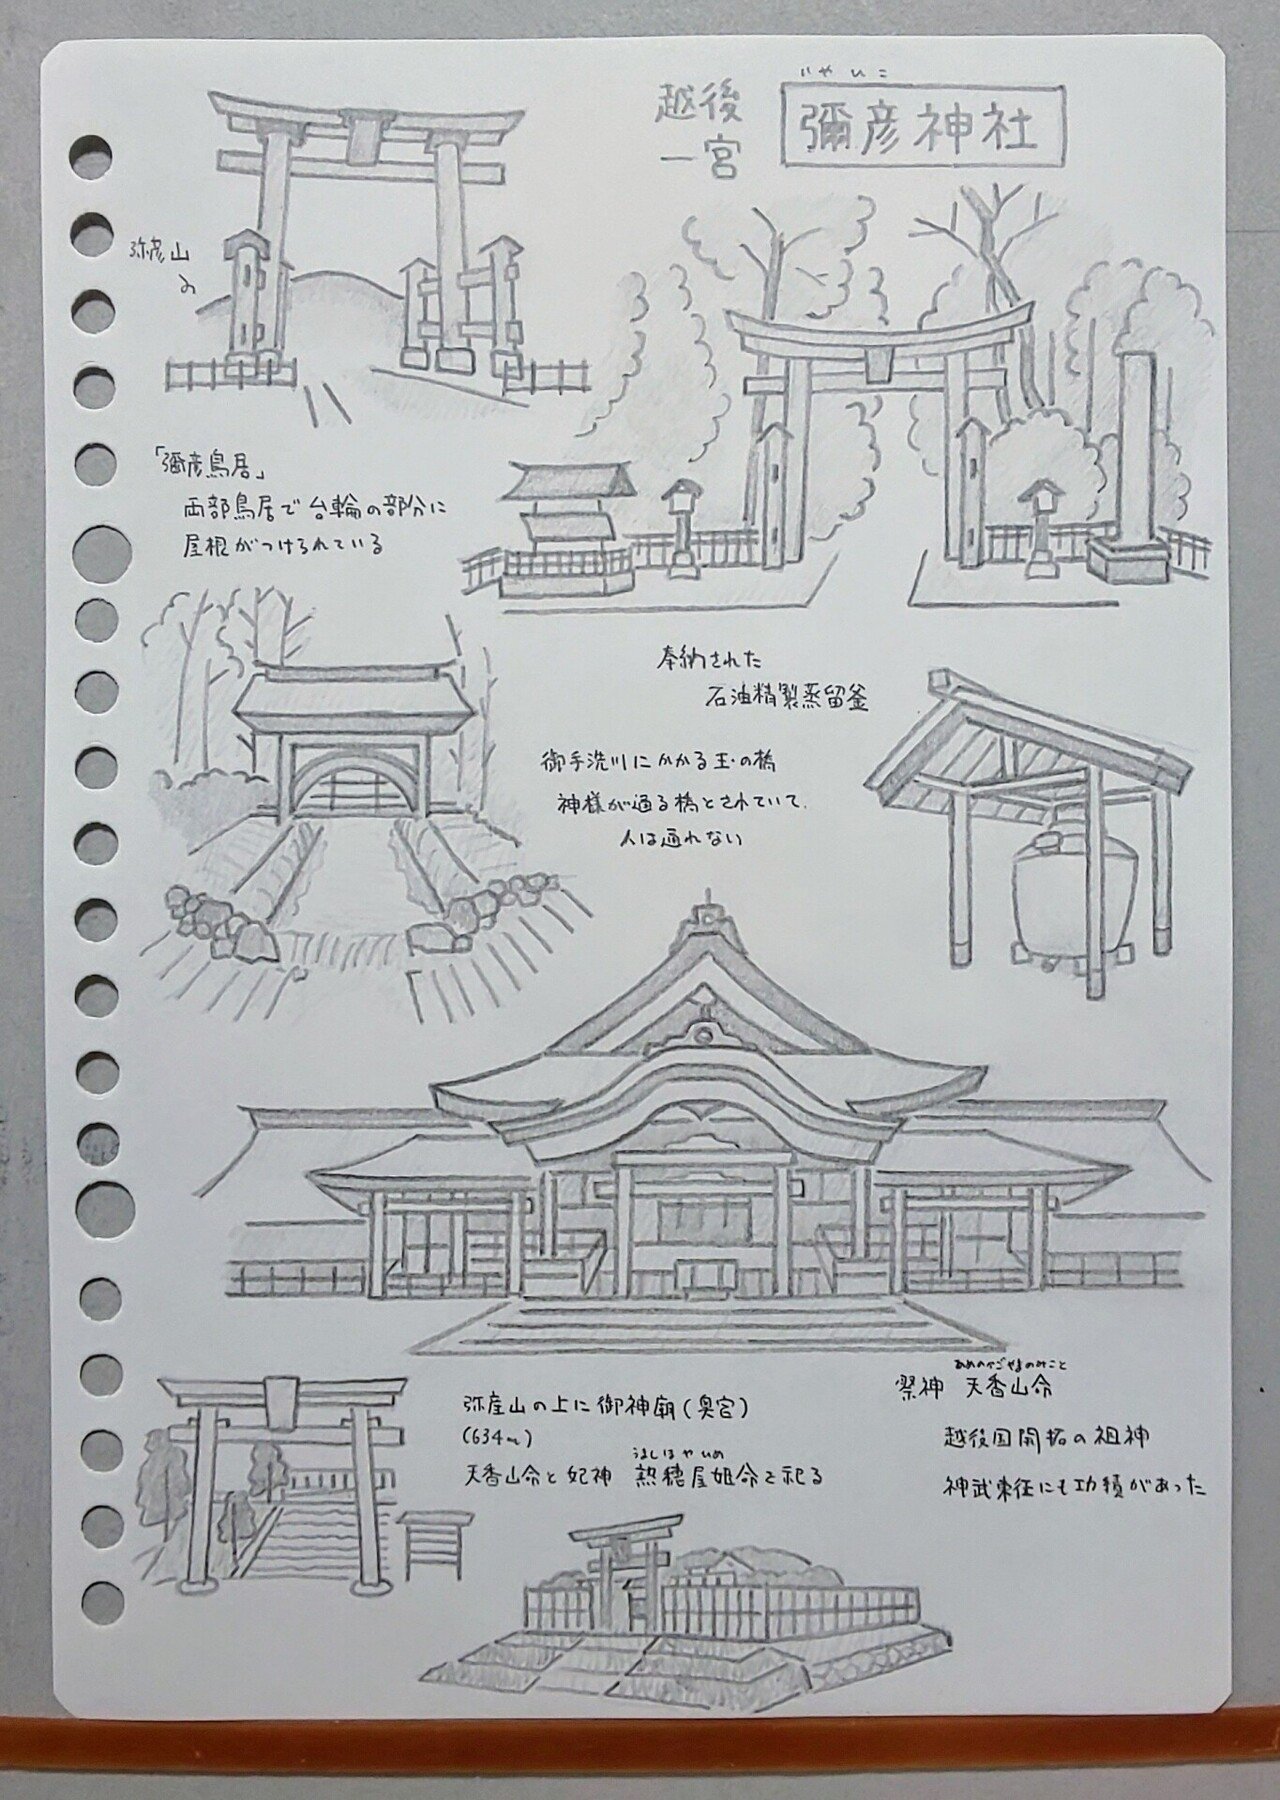 越後
一宮
いやひこ
彌彦神社
弥彦山
「彌彦鳥居」
両部鳥居で台輪の部分に
屋根がつけられている
奉納された
石油精製蒸留釜
御手洗川にかかる玉の橋
神様が通る橋とされていて、
人は通れない
あめのかごやまのみこと
祭神 天香山命
越後国開拓の祖神
神武東征にも功績があった
弥彦山の上に御神廟(奥宮)
(634m)
うましほやひめ
天香山命と妃神 熟穂屋姫命を祀る